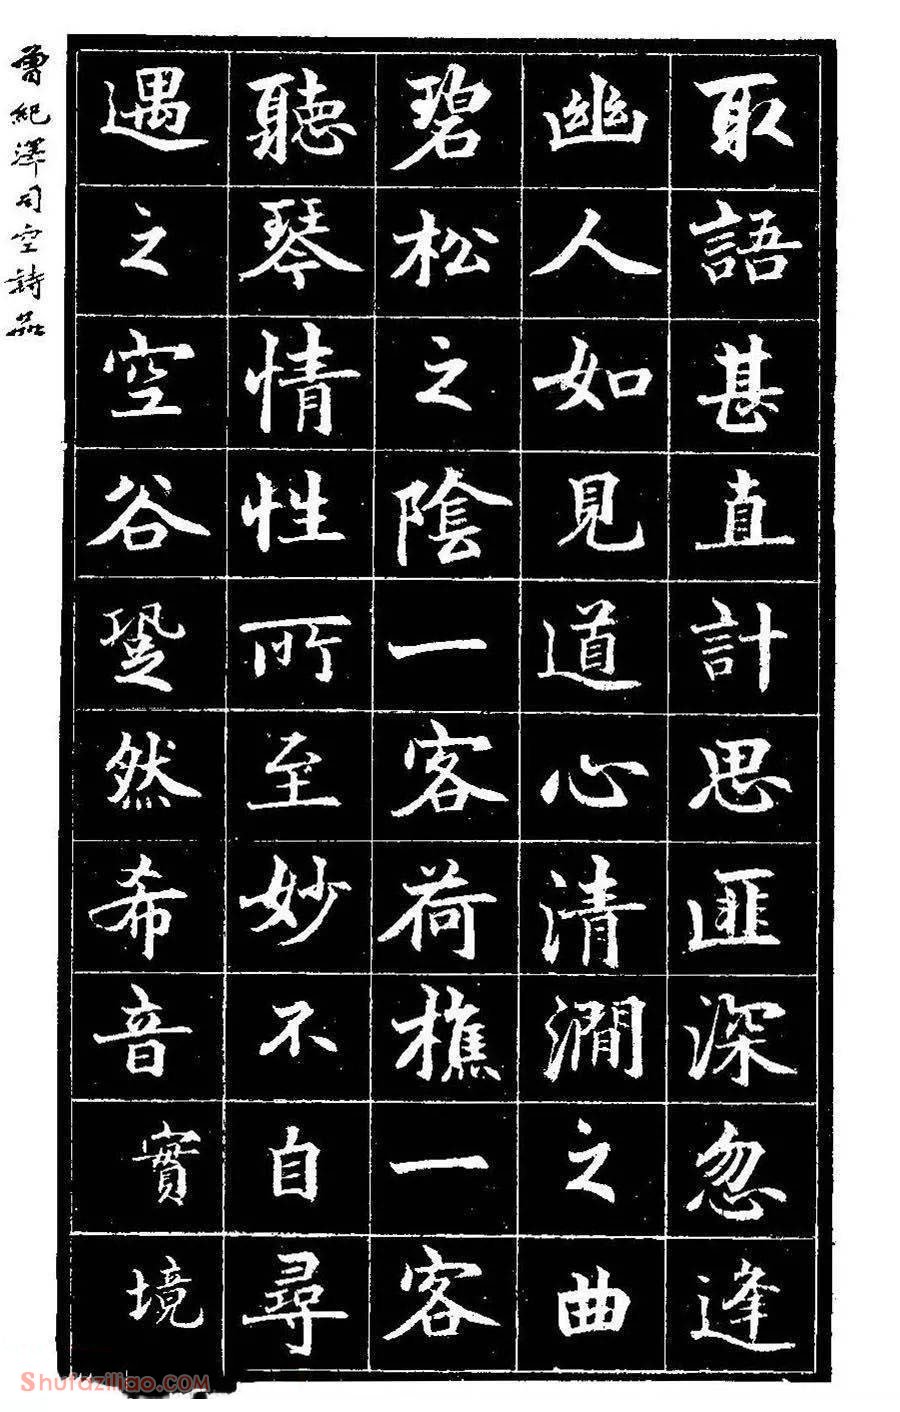 取語甚直計思匪深忽逢
幽人如見道心清澗之曲
碧松之陰一客荷樵一客
聽琴情性所至妙不自尋
遇之空谷跫然希音實境
曾紀澤司空詩品
Shufaziliao.COM